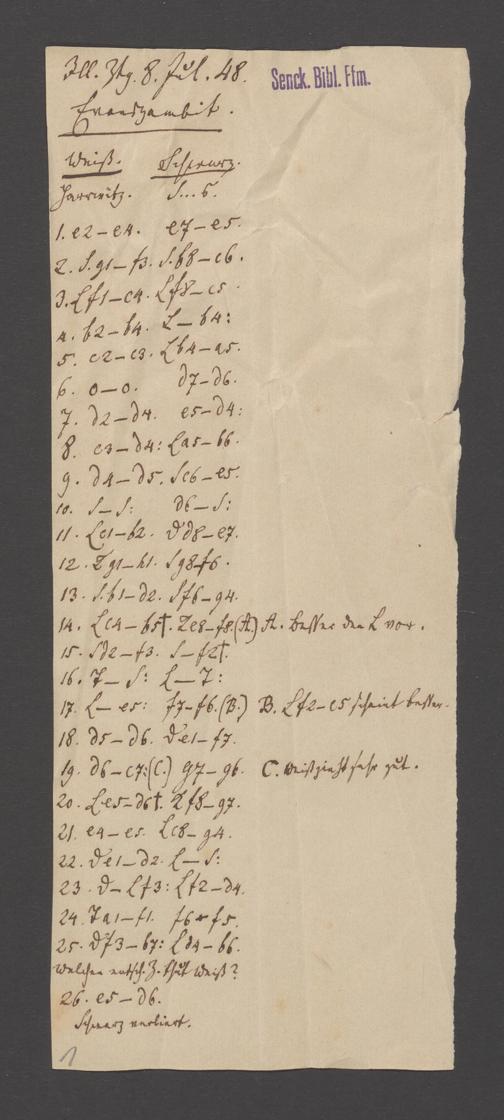 Ill. Ztg. 8. Jul. 48.
Senck. Bibl. Ffm.
Evansgambit.
Weiß. Schwarz.
Harrwitz. S...s.
1. e2–e4. e7–e5.
2. S.g1–f3. S.b8–c6.
3. Lf1–c4. Lf8–c5.
4. b2–b4. L–b4:
5. c2–c3. Lb4–a5.
6. o–o. d7–d6.
7. d2–d4. e5–d4:
8. c3–d4: La5–b6.
9. d4–d5. Sc6–e5.
10. S–S: d6–S:
11. Lc1–b2. Dd8–e7.
12. Kg1–h1. Sg8–f6.
13. S.b1–d2. Sf6–g4.
14. Lc4–b5†. Ke8–f8.(A.) A. besser den L vor.
15. Sd2–f3. S–f2†.
16. T–S: L–T:
17. L–e5: f7–f6.(B.) B. Lf2–c5 scheint besser.
18. d5–d6. De7–f7.
19. d6–c7:(C.) g7–g6. C. Weiß zieht sehr gut.
20. Le5–d6†. Kf8–g7.
21. e4–e5. Lc8–g4.
22. De1–d2. L–S:
23. D–Lf3: Lf2–d4.
24. Ta1–f1. f6–f5.
25. Df3–b7: Ld4–b6.
Welchen entsch. Z. thut Weiß?
26. e5–d6.
Schwarz verliert.
1